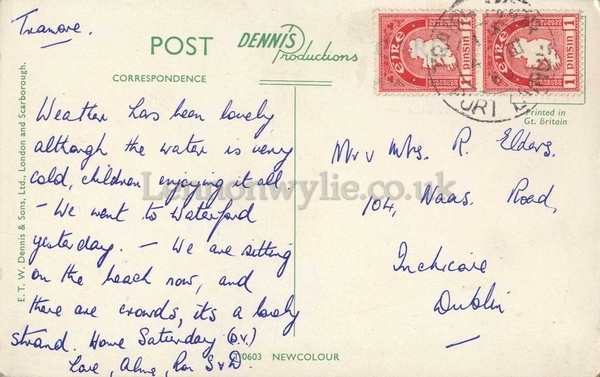 Tramore.
POST
DENNIS
Productions
CORRESPONDENCE
Weather has been lovely
although the water is very
cold, children enjoying it all.
– We went to Waterford
yesterday. – We are sitting
on the beach now, and
there are crowds, it's a lovely
strand. Home Saturday (D.V.)
Love,
E. T. W. Dennis & Sons, Ltd., London and Scarborough.
0603 NEWCOLOUR
ÉIRE
1 pinsin 1
ÉIRE
1 pinsin 1
PORT LÁIRGE
Printed in
Gt. Britain
Mr v Mrs. R. Elders.
104, Naas Road,
Inchicore
Dublin
Lennonwylie.co.uk